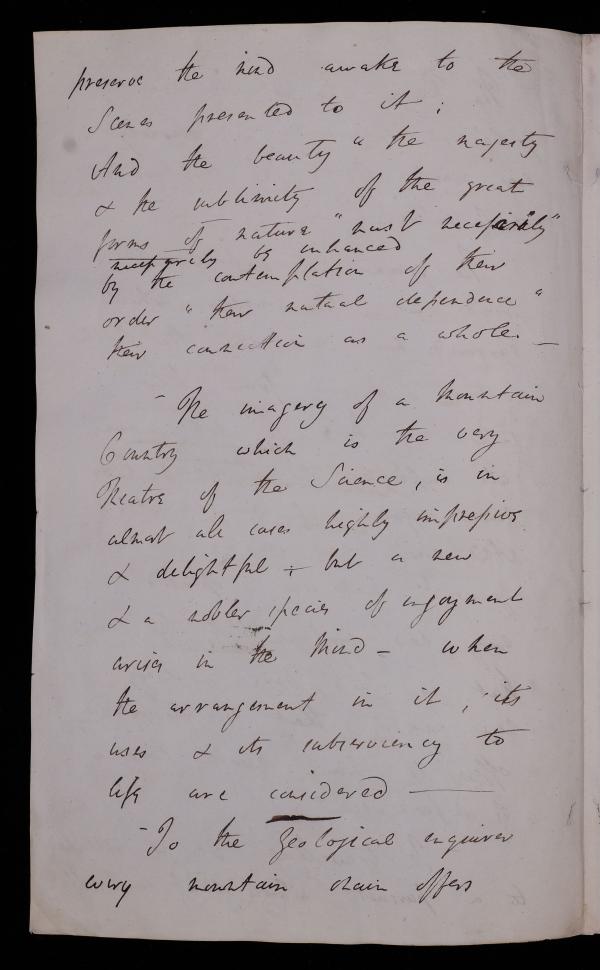 preserve the mind awake to the
Scenes presented to it;
And the beauty " the majesty
& the sublimity of the great
forms of nature "must necessarily"
necessarily be enhanced
by the contemplation of their
order " their mutual dependence "
their connection as a whole. —
- The imagery of a Mountain
Country which is the very
Theatre of the Science, is in
almost all cases highly impressive
& delightful ; - but a new
& a nobler species of enjoyment
arises in the Mind - when
the arrangement in it, its
uses & its subserviency to
life are considered —
- To the Geological enquirer
every mountain chain offers